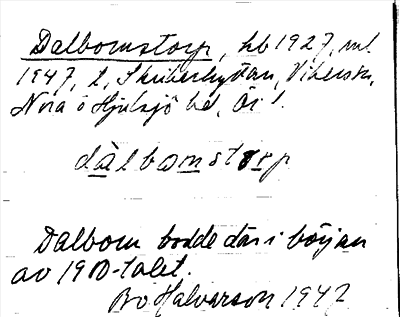 Dalbomstorp, hb 1927, ml
1947, t, Skrikarhyttan, Vikers sn,
Nora o Hjulsjö bd, Ör l.
dàlbomstorp
Dalbom bodde där i början
av 1900-talet.
Bo Halvarson 1947